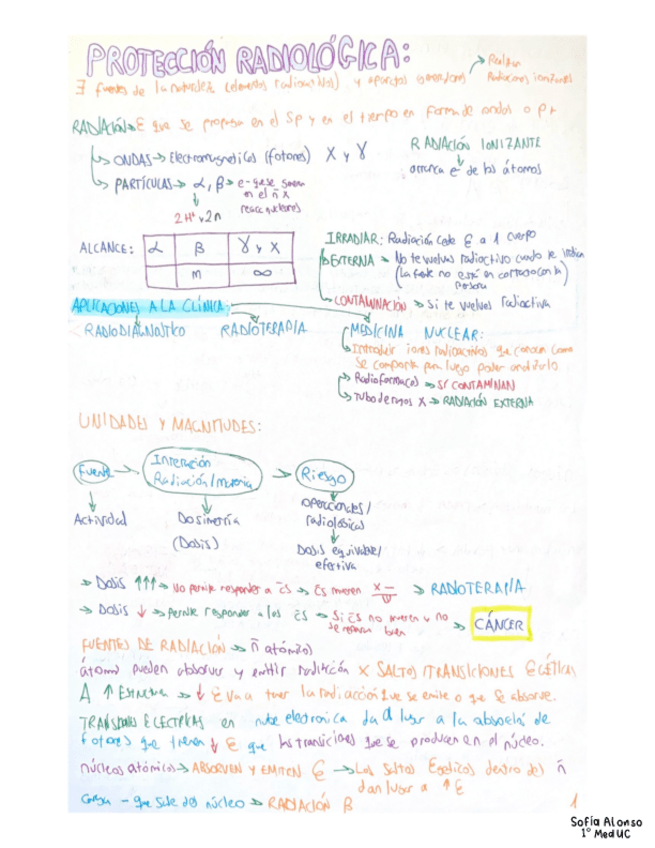 PROTECCIÓN RADIOLÓGICA:
∃ fuentes de la naturaleza (elementos radioactivos) y aparatos generadores → Realizan
Radiaciones ionizantes
RADIACIÓN → E que se propaga en el Sp y en el tiempo en forma de ondas o p+
↳ ONDAS → Electromagnéticas (fotones) X y γ
↳ PARTÍCULAS → α, β → e- que se
en el ñ x
2H⁺ y 2n
RADIACIÓN IONIZANTE
arranca e- de los átomos
ALCANCE: α β γ y X
m ∞
IRRADIAR: Radiación cede E a 1 cuerpo
↳ EXTERNA → No te vuelves radiactivo cuando te irradian
(La fuente no está en contacto con la
persona
↳ CONTAMINACIÓN → Si te vuelves radiactiva
APLICACIONES A LA CLÍNICA:
RADIODIAGNOSTICO RADIOTERAPIA MEDICINA NUCLEAR:
↳ Introducir iones radioactivos que conocen como
se comporta para luego poder analizarlo
↳ Radiofarmacos → SÍ CONTAMINAN
↳ Tubo de rayos X → RADIACIÓN EXTERNA
UNIDADES Y MAGNITUDES:
Fuente → Interacción Radiación/materia → Riesgo
Actividad
Dosimetría
(Dosis)
operacionales/
radiológicas
Dosis equivalente/
efectiva
→ Dosis ↑↑↑ → No permite responder a c̄s → c̄s mueren → RADIOTERAPIA
→ Dosis ↓ → Permite responder a los c̄s → Si c̄s no mueren y no
se reparan bien → CÁNCER
FUENTES DE RADIACIÓN → ñ atómico)
átomo pueden absorver y emitir radiación X SALTOS/TRANSICIONES
A ↑ Estructura → ↓ E va a tener la radiacción que se emite o que se absorve.
TRANSICIONES ELECTRICAS en nube electronica da lugar a la absoción de
fotones que tienen ↓ E que las transiciones que se producen en el núcleo.
núcleos atómicos → ABSORVEN Y EMITEN E → Los saltos Egéticos dentro del ñ
dan lugar a ↑ E
Carga - que sale del núcleo → RADIACIÓN β
1
Sofía Alonso
1º MedUC